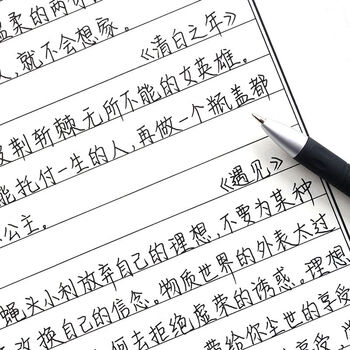 温柔的两
就不会想家。
《清白之年》
荆斩棘无所不能的女英雄。
能托付一生的人，再做一个瓶盖都
公主。
《遇见》
利放弃自己的理想，不要为某种
蝇头小利放弃自己的理想，不要为某种
改换自己的信念。物质世界的外表太过
何去拒绝虚荣的诱惑。理想
带给你尘世的享受